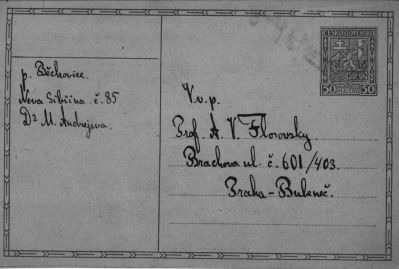 p. Běchovice.
Nova Sibřina č. 85
Dr M. Andrejeva.
ČESKOSLOVENSKO
50 50
V.v.p.
Prof. A. V. Florovsky
Brachova ul. č. 601/403.
Praha - Bubeneč.